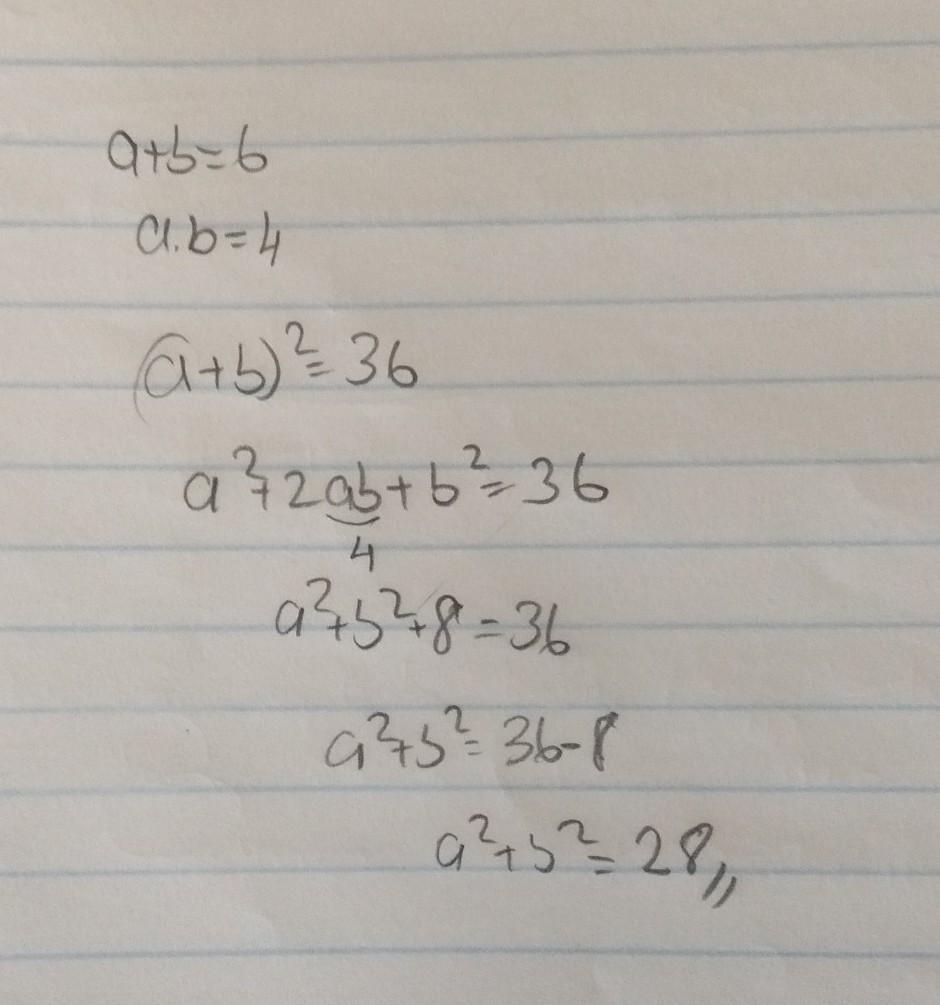 a+b=6
a.b=4
(a+b)²=36
a²+2ab+b²=36
4
a²+b²+8=36
a²+b²=36-8
a²+b²=28,,